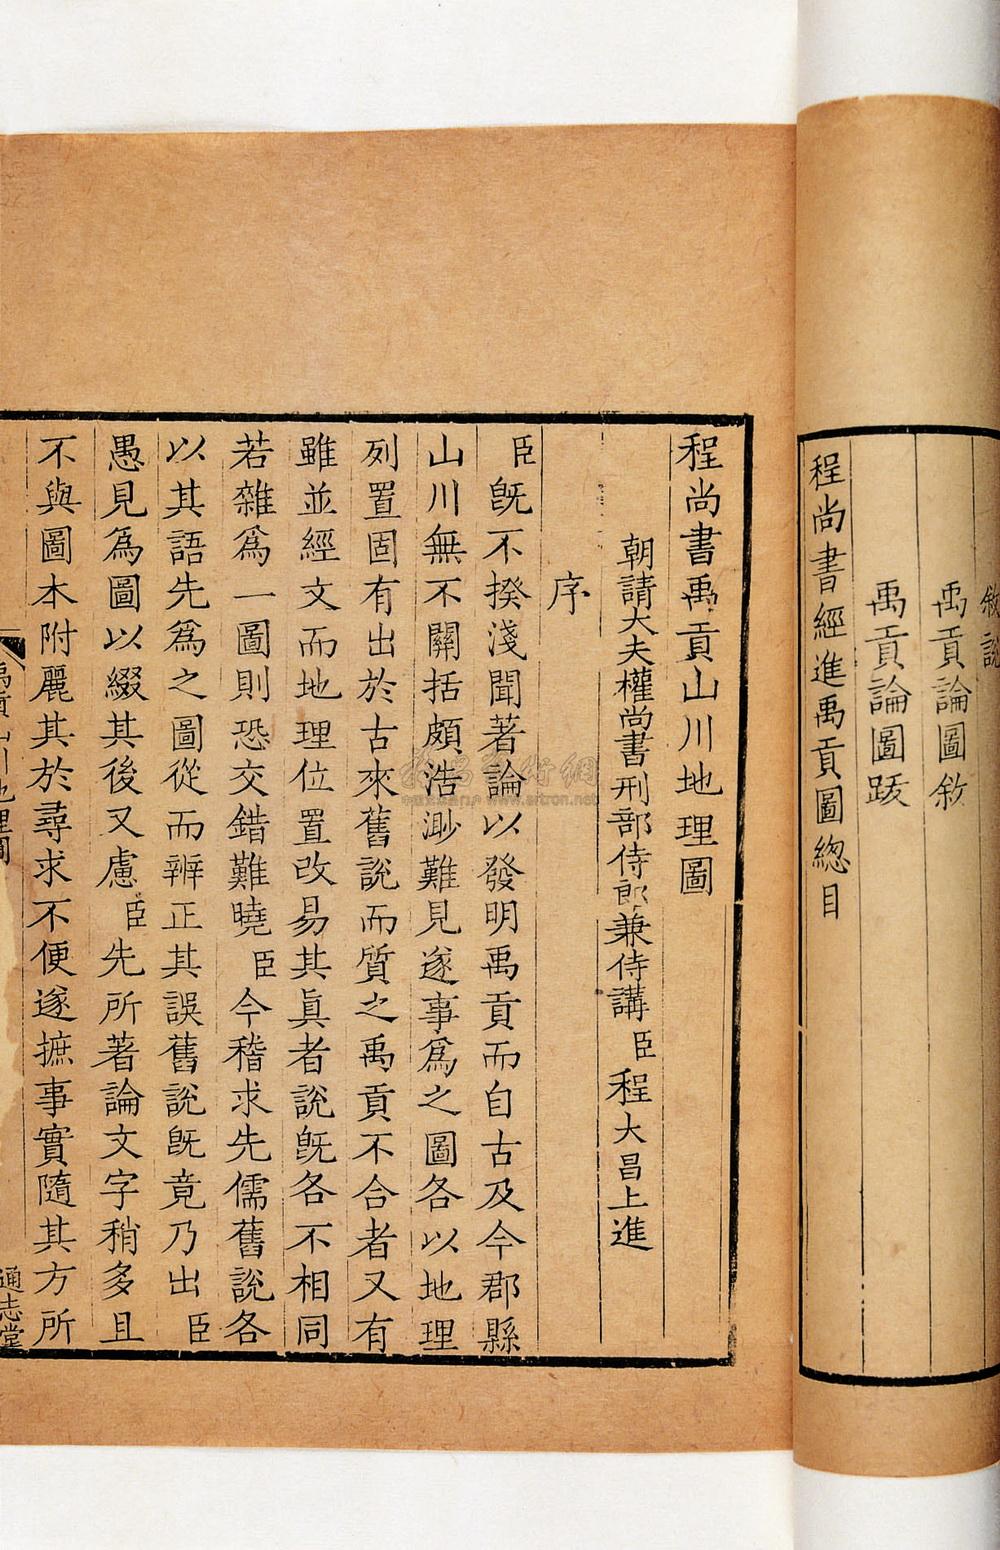 敘說
禹貢論圖敘
禹貢論圖跋
程尚書經進禹貢圖總目
程尚書禹貢山川地理圖
朝請大夫權尚書刑部侍郎兼侍講臣程大昌上進
序
臣旣不揆淺聞著論以發明禹貢而自古及今郡縣
山川無不關括頗浩渺難見遂事爲之圖各以地理
列置固有出於古來舊說而質之禹貢不合者又有
雖並經文而地理位置改易其眞者說旣各不相同
若雜爲一圖則恐交錯難曉臣今稽求先儒舊說各
以其語先爲之圖從而辨正其誤舊説旣竟乃出臣
愚見爲圖以綴其後又慮臣先所著論文字稍多且
不與圖本附麗其於尋求不便遂摭事實隨其方所
禹貢山川地理圖
通志堂
www.artron.net